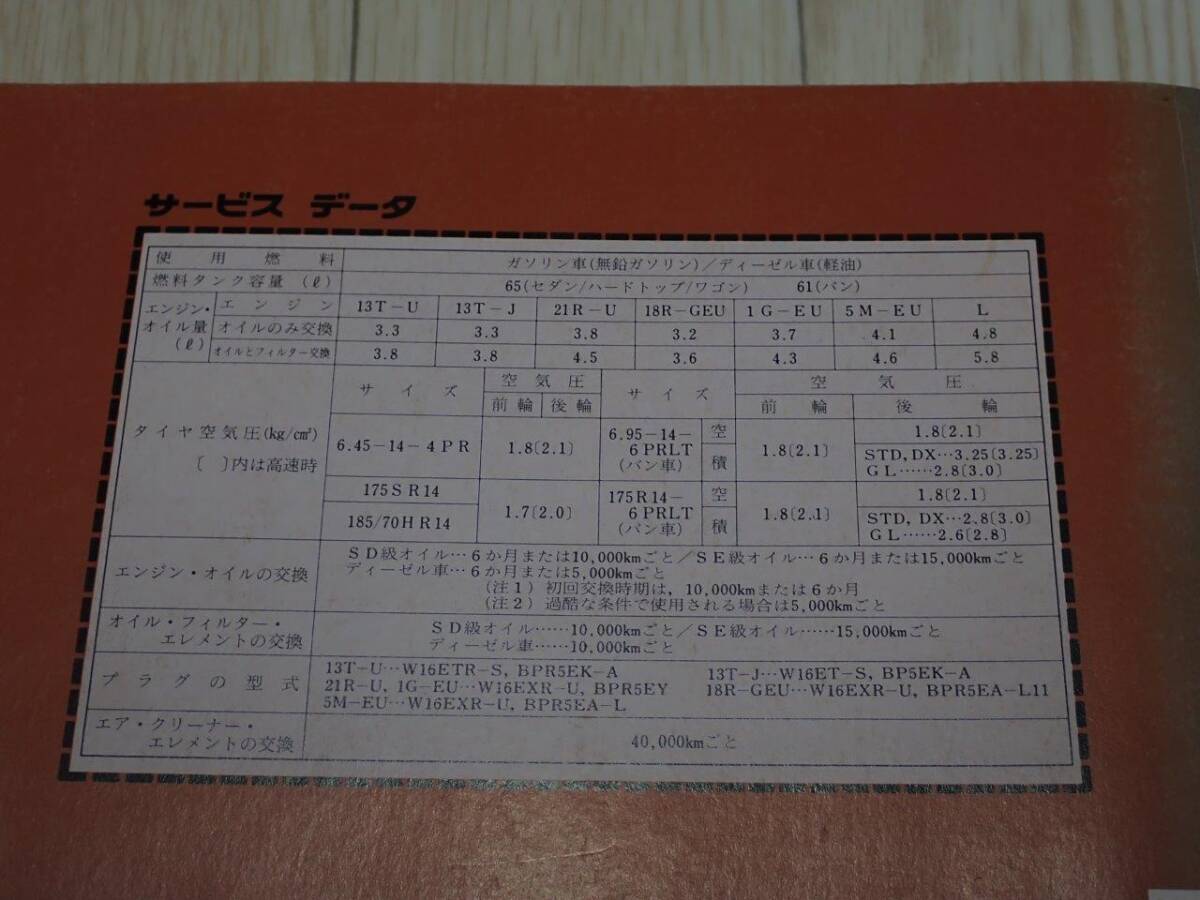 サービス データ
使用燃料 ガソリン車(無鉛ガソリン)／ディーゼル車(軽油)
燃料タンク容量 (ℓ) 65(セダン/ハードトップ/ワゴン) 61(バン)
エンジン・オイル量(ℓ) エンジン 13T-U 13T-J 21R-U 18R-GEU 1G-EU 5M-EU L
オイルのみ交換 3.3 3.3 3.8 3.2 3.7 4.1 4.8
オイルとフィルター交換 3.8 3.8 4.5 3.6 4.3 4.6 5.8
タイヤ空気圧(kg/cm²)
〔 〕内は高速時
サイズ 空気圧 サイズ 空気圧
前輪 後輪 前輪 後輪
6.45-14-4PR 1.8〔2.1〕 6.95-14-6PRLT(バン車) 空 1.8〔2.1〕 1.8〔2.1〕
積 STD, DX…3.25〔3.25〕
GL……2.8〔3.0〕
175SR14 1.7〔2.0〕 175R14-6PRLT(バン車) 空 1.8〔2.1〕 1.8〔2.1〕
185/70HR14 積 STD, DX…2.8〔3.0〕
GL……2.6〔2.8〕
エンジン・オイルの交換 SD級オイル…6か月または10,000kmごと／SE級オイル…6か月または15,000kmごと
ディーゼル車…6か月または5,000kmごと
(注1) 初回交換時期は, 10,000kmまたは6か月
(注2) 過酷な条件で使用される場合は5,000kmごと
オイル・フィルター・エレメントの交換 SD級オイル……10,000kmごと／SE級オイル……15,000kmごと
ディーゼル車……10,000kmごと
プラグの型式 13T-U…W16ETR-S, BPR5EK-A 13T-J…W16ET-S, BP5EK-A
21R-U, 1G-EU…W16EXR-U, BPR5EY 18R-GEU…W16EXR-U, BPR5EA-L11
5M-EU…W16EXR-U, BPR5EA-L
エア・クリーナー・エレメントの交換 40,000kmごと